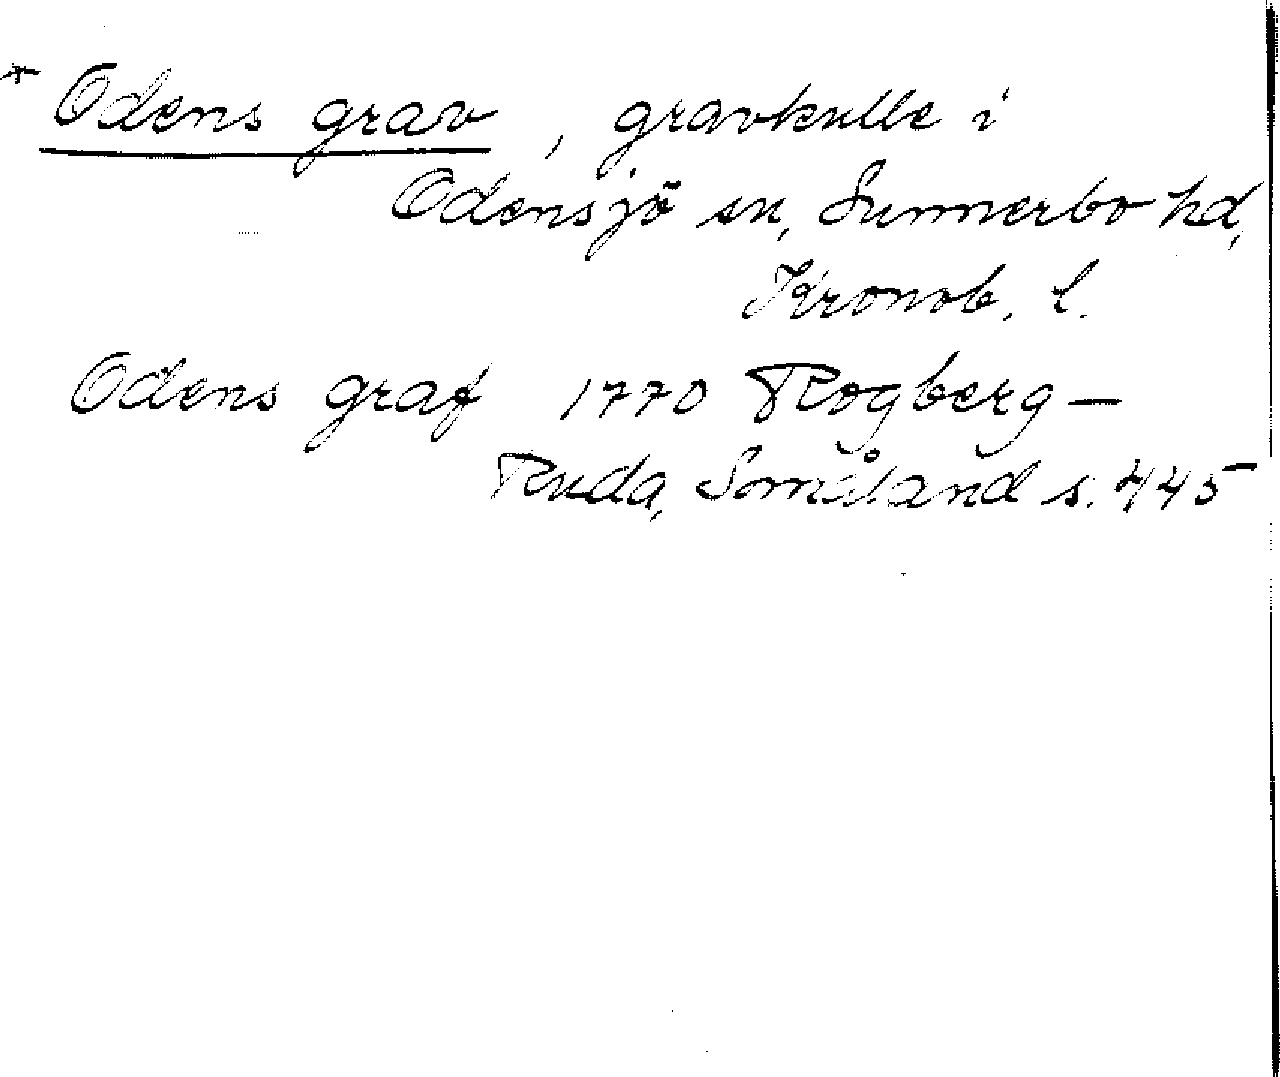 * Odens grav, gravkulle i
Odensjö sn, Sunnerbo hd,
Kronob. l.
Odens graf 1770 Rogberg-
Ruda, Småland s. 445